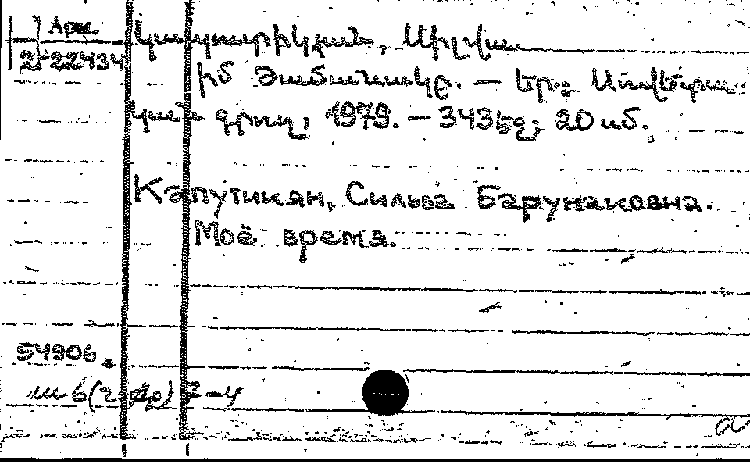 Арм.
2-22434
Կապուտիկյան, Սիլվա
Իմ ժամանակը. — Եր.: Սովետա-
կան գրող, 1979. — 343 էջ; 20 սմ.
Капутикян, Сильва Барунаковна.
Моё время.
54906.